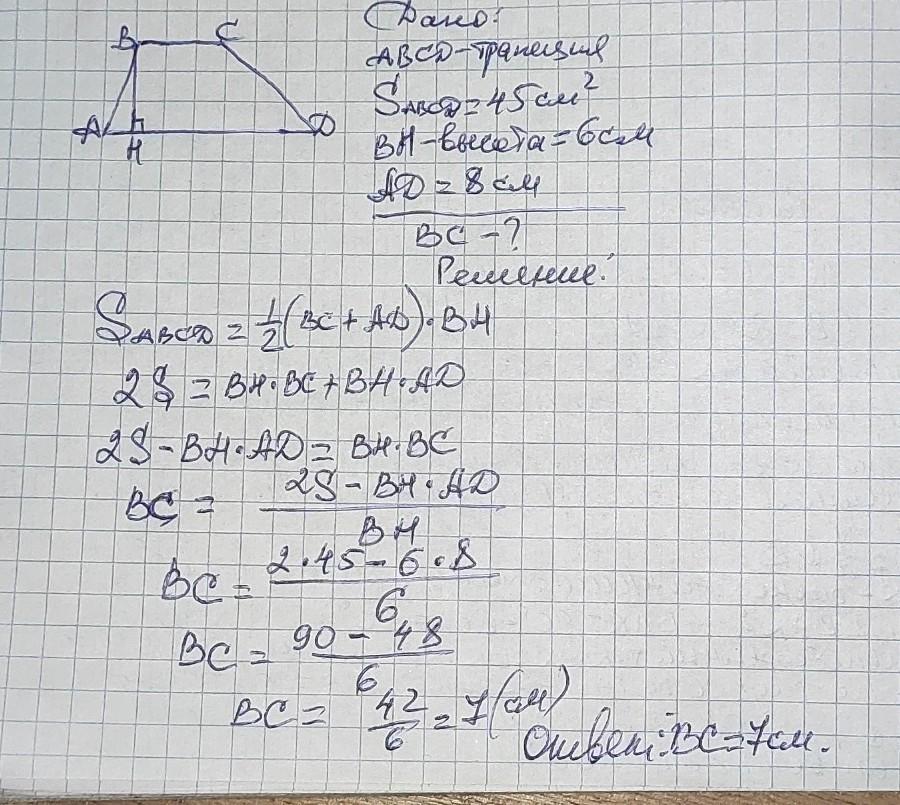 B C
A H D
Дано:
ABCD-трапеция
S_ABCD = 45 см²
BH-высота = 6 см
AD = 8 см
BC - ?
Решение:
S_ABCD = 1/2 (BC + AD) · BH
2S = BH · BC + BH · AD
2S - BH · AD = BH · BC
BC = (2S - BH · AD) / BH
BC = (2 · 45 - 6 · 8) / 6
BC = (90 - 48) / 6
BC = 42/6 = 7 (см)
Ответ: BC = 7 см.